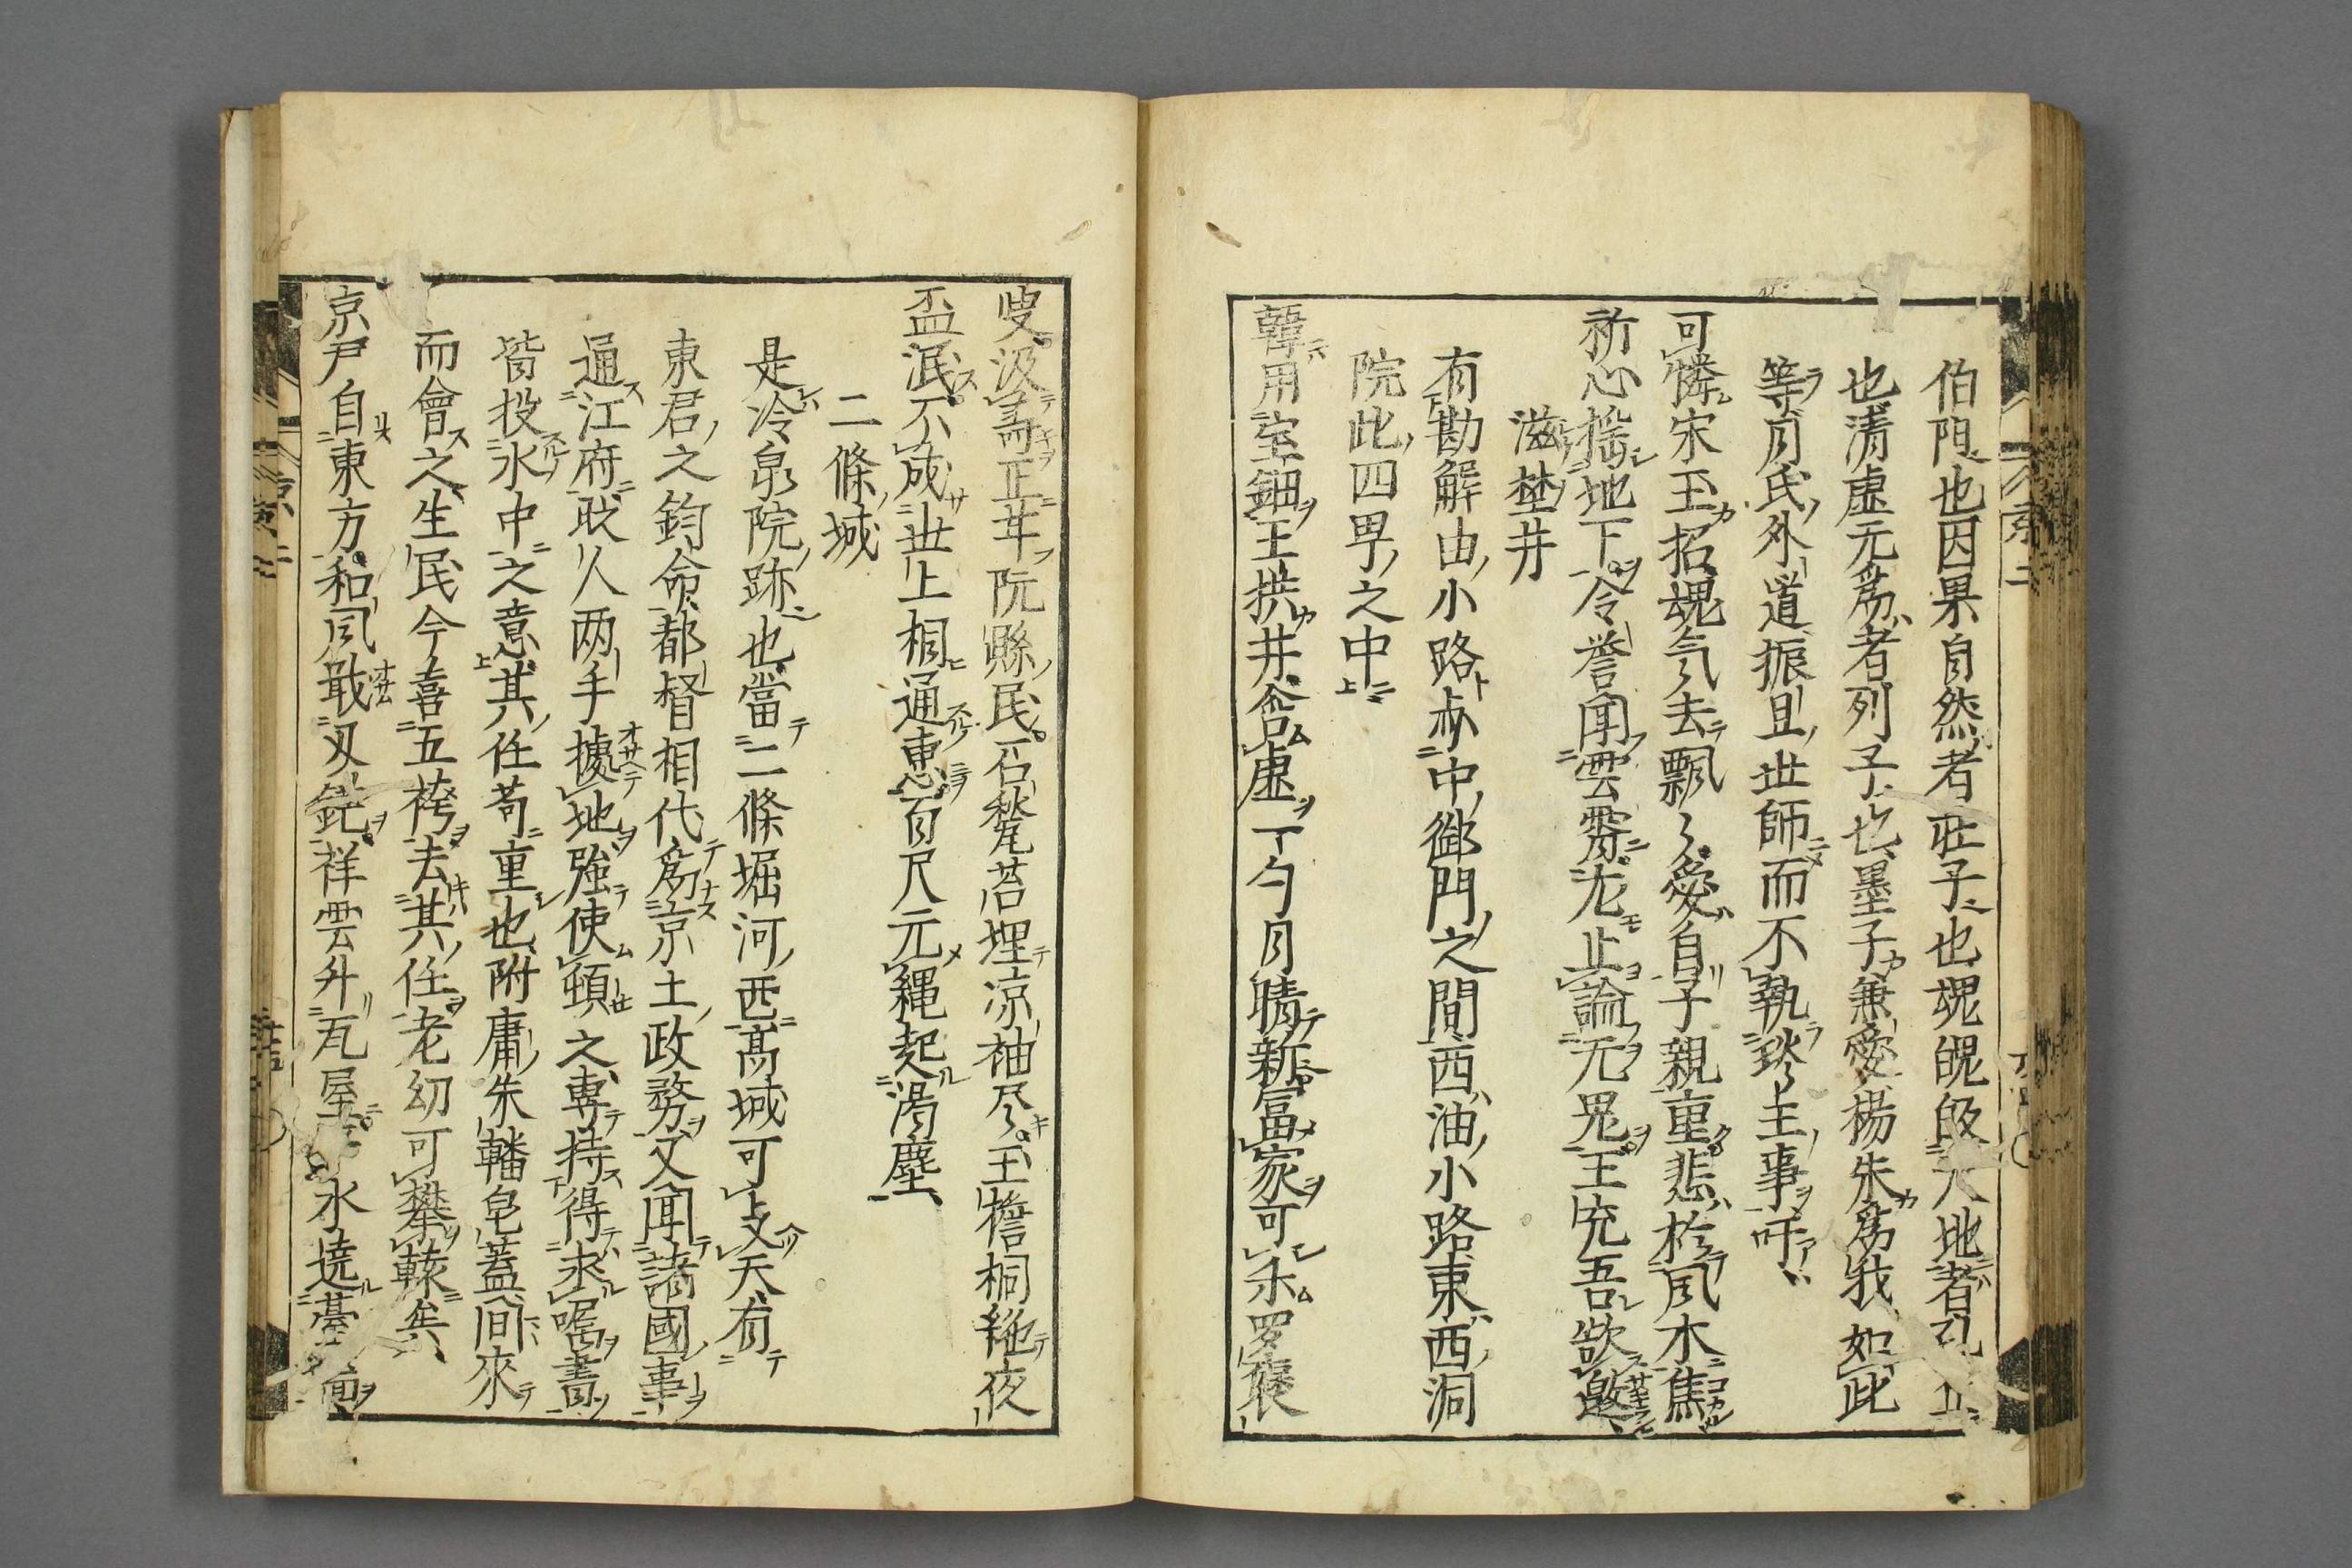 伯陽也因果自然者莊子也魂魄皈天地者孔丘
也清虛元爲者列子也墨子兼愛楊朱爲我如此
等月氏外道振旦世師而不執
主事吁
可憐宋玉招魂气去飄〻愛自子親重悲於風木焦
祈心搖地下令誉聞雲霄尤止論无鬼王充吾欲邀
滋
井
有勘解由小路亦中御門之間西油小路東西洞
院此四
之中
韓用宝鈿王拱井含虛一勺月晴新富家可
羅襄
叟汲
正
阮縣民石甃苔埋凉袖尽玉檐桐
夜
盃泯不成世上桐通惠百尺元繩起渇塵
二條城
是冷泉院跡也當二條堀河西高城可上
天有
東君之鈞命都督相代爲京土政務又聞諸國事
通江府
人两手據地強使頓之專持得求嘱書
皆投水中之意其任苟重也附庸朱轓皂蓋間來
而會之生民今喜五袴去其任老幼可攀轅矣
京尹自東方和風戢
祥雲升瓦屋
水遶臺